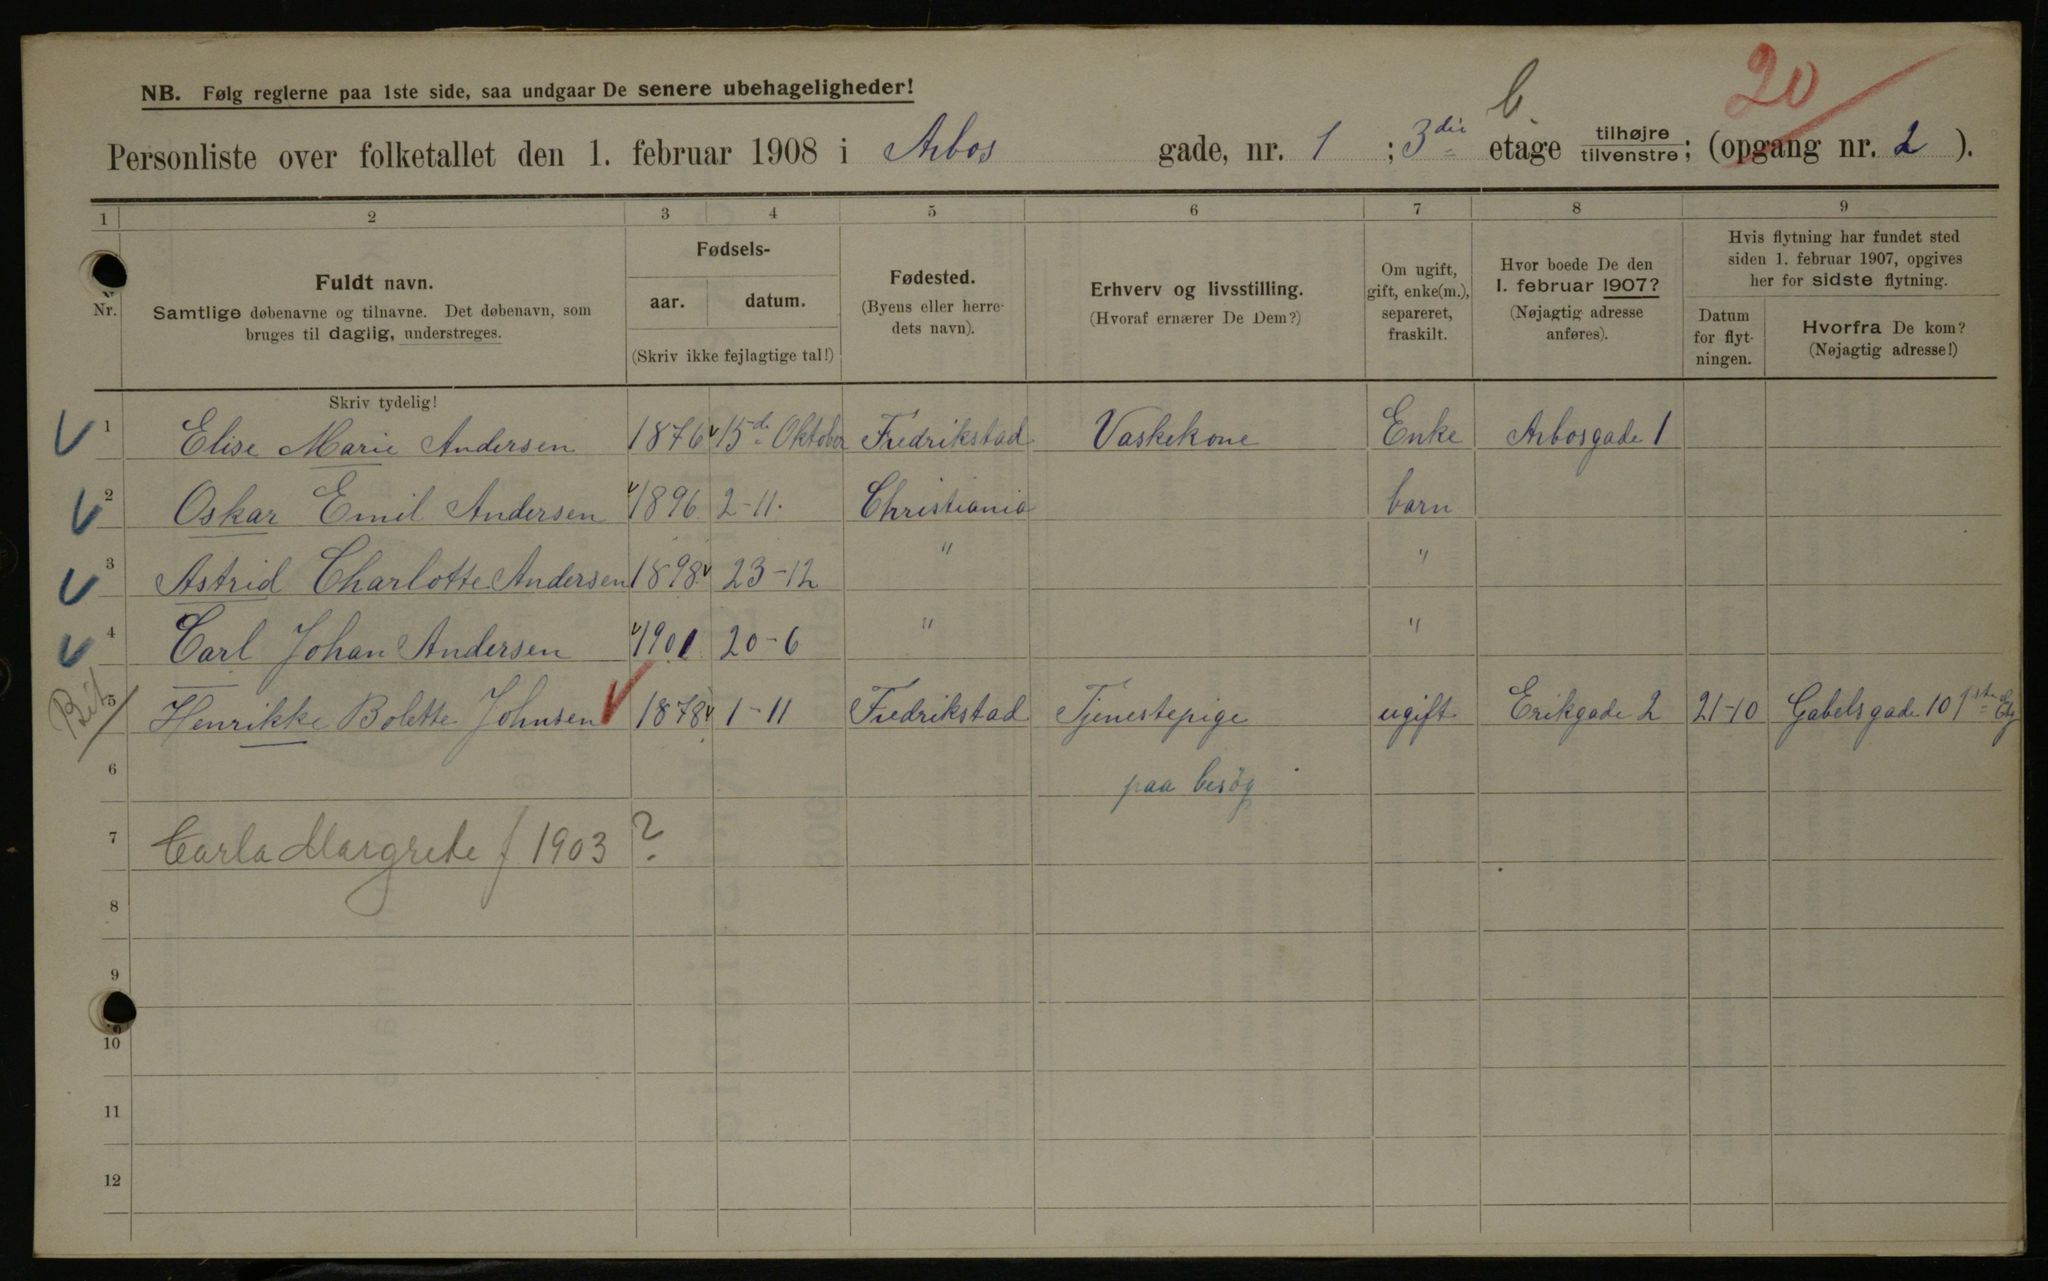 b
20
NB. Følg reglerne paa 1ste side, saa undgaar De senere ubehageligheder!
Personliste over folketallet den 1. februar 1908 i Arbos gade, nr. 1 ; 3die etage tilhøjre/tilvenstre; (opgang nr. 2 ).
1 2 3 4 5 6 7 8 9
Nr.
Fuldt navn.
Samtlige døbenavne og tilnavne. Det døbenavn, som
bruges til daglig, understreges.
Skriv tydelig!
Fødsels-
aar. datum.
(Skriv ikke fejlagtige tal!)
Fødested.
(Byens eller herre-
dets navn).
Erhverv og livsstilling.
(Hvoraf ernærer De Dem?)
Om ugift,
gift, enke(m.),
separeret,
fraskilt.
Hvor boede De den
1. februar 1907?
(Nøjagtig adresse
anføres).
Hvis flytning har fundet sted
siden 1. februar 1907, opgives
her for sidste flytning.
Datum
for flyt-
ningen.
Hvorfra De kom?
(Nøjagtig adresse!)
1 Elise Marie Andersen 1876 15de Oktober Fredrikstad Vaskekone Enke Arbosgade 1
2 Oskar Emil Andersen 1896 2-11. Christiania barn
3 Astrid Charlotte Andersen 1898 23-12 " "
4 Carl Johan Andersen 1901 20-6 " "
5 Henrikke Bolette Johnsen 1878 1-11 Fredrikstad Tjenestepige ugift Erikgade 2 21-10 Gabelsgade 10 1ste Etg
6 paa besøg
7 Carla Margrete f 1903 ?
8
9
10
11
12